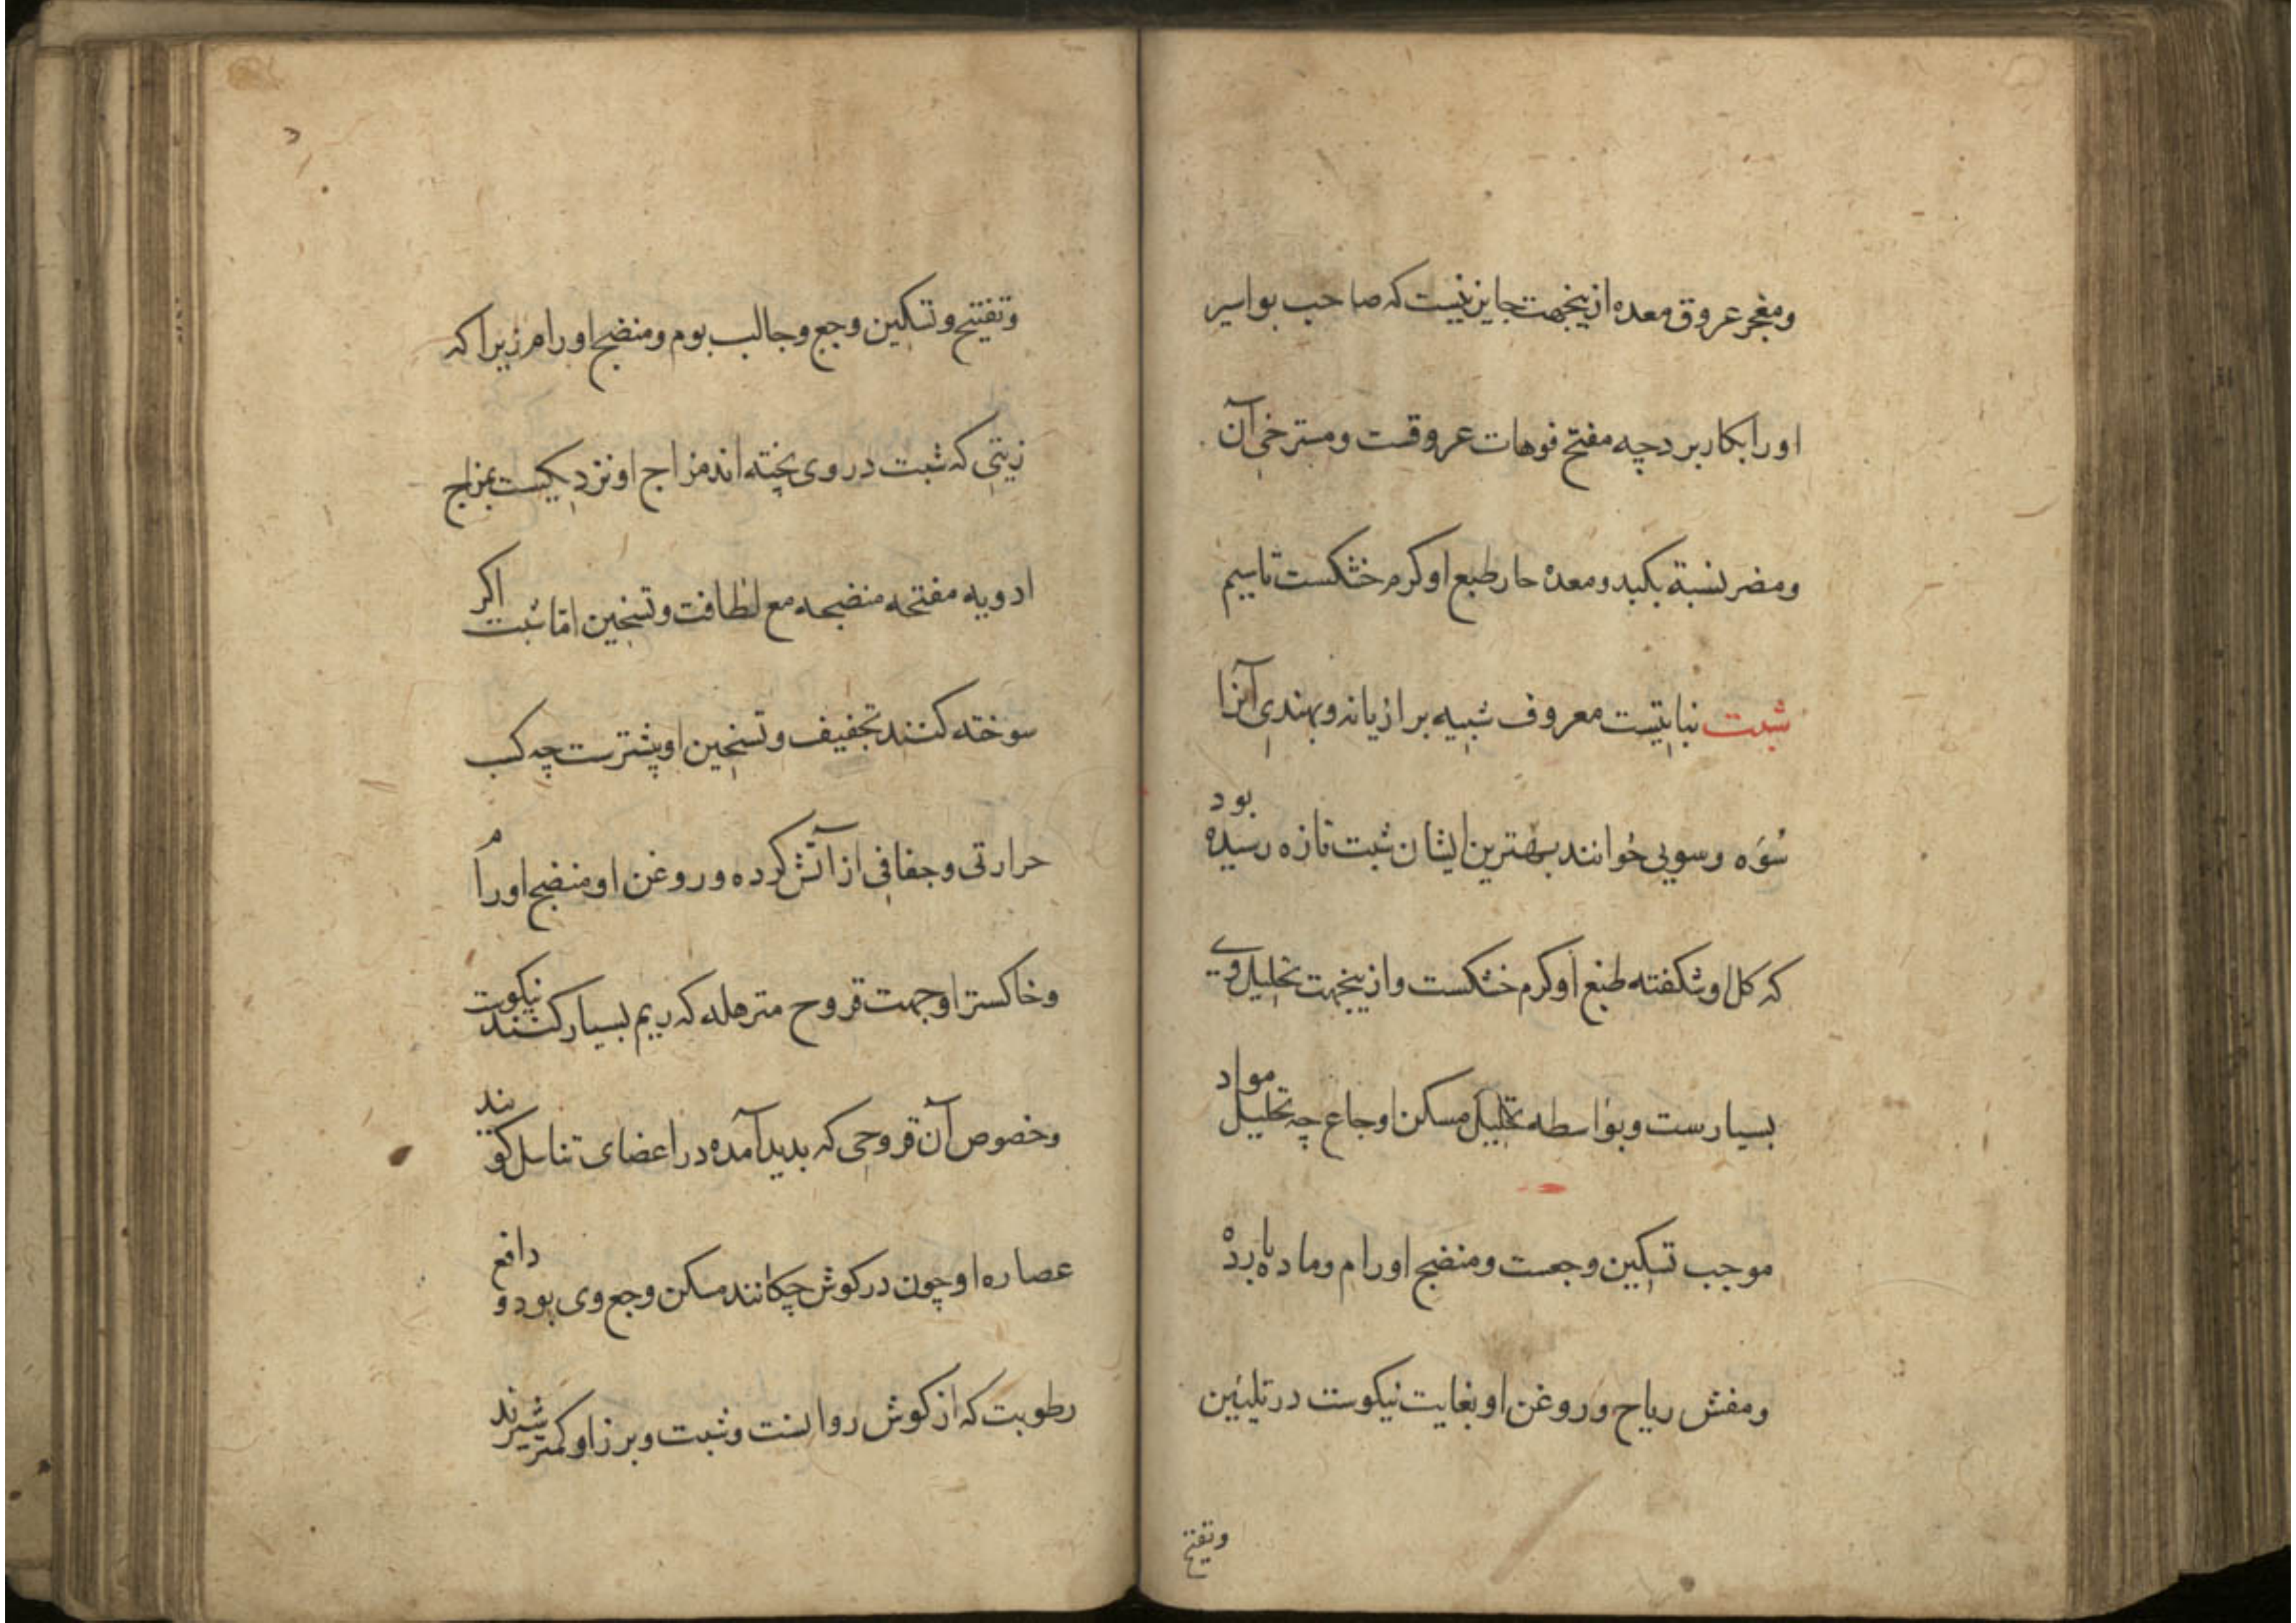 ومفجر عروق معده ازینجهت جایز نیست که صاحب بواسیر
اورا بکار برد چه مفتح فوهات عروقست ومسترخی آن
ومضر نسبة بکبد ومعده حار طبع او کرم خشکست تاسیم
شبت نباتیست معروف شبیه برازیانه وبهندی آنرا
سُوَه وسویی خوانند بهترین ایشان شبت تازه رسیده بود
که کل او شکفته طبع او کرم خشکست وازینجهت تحلیل وی
بسیارست وبواسطه تحلیل مسکن اوجاع چه تحلیل مواد
موجب تسکین وجعست ومنضج اورام وماده بارده
ومفش ریاح وروغن او بغایت نیکوست در تلیین
وتفتیح
وتفتیح وتسکین وجع وجالب بوم ومنضج اورام زیرا که
زیتی که شبت در وی پخته اند مزاج او نزدیکست بمزاج
ادویه مفتحه منضجه مع لطافت وتسخین اما شبت اکر
سوخته کنند تجفیف وتسخین او پیشترست چه کسب
حرارتی وجفافی از آتش کرده وروغن او منضج اورام
وخاکستر او جهت قروح مترهله که ریم بسیار کنند نیکوست
وخصوص آن قروحی که بدید آمده در اعضای تناسل کویند
عصاره او چون در کوش چکانند مسکن وجع وی بود و دافع
رطوبت که از کوش روانست وشبت وبرز او کمتر شیرند